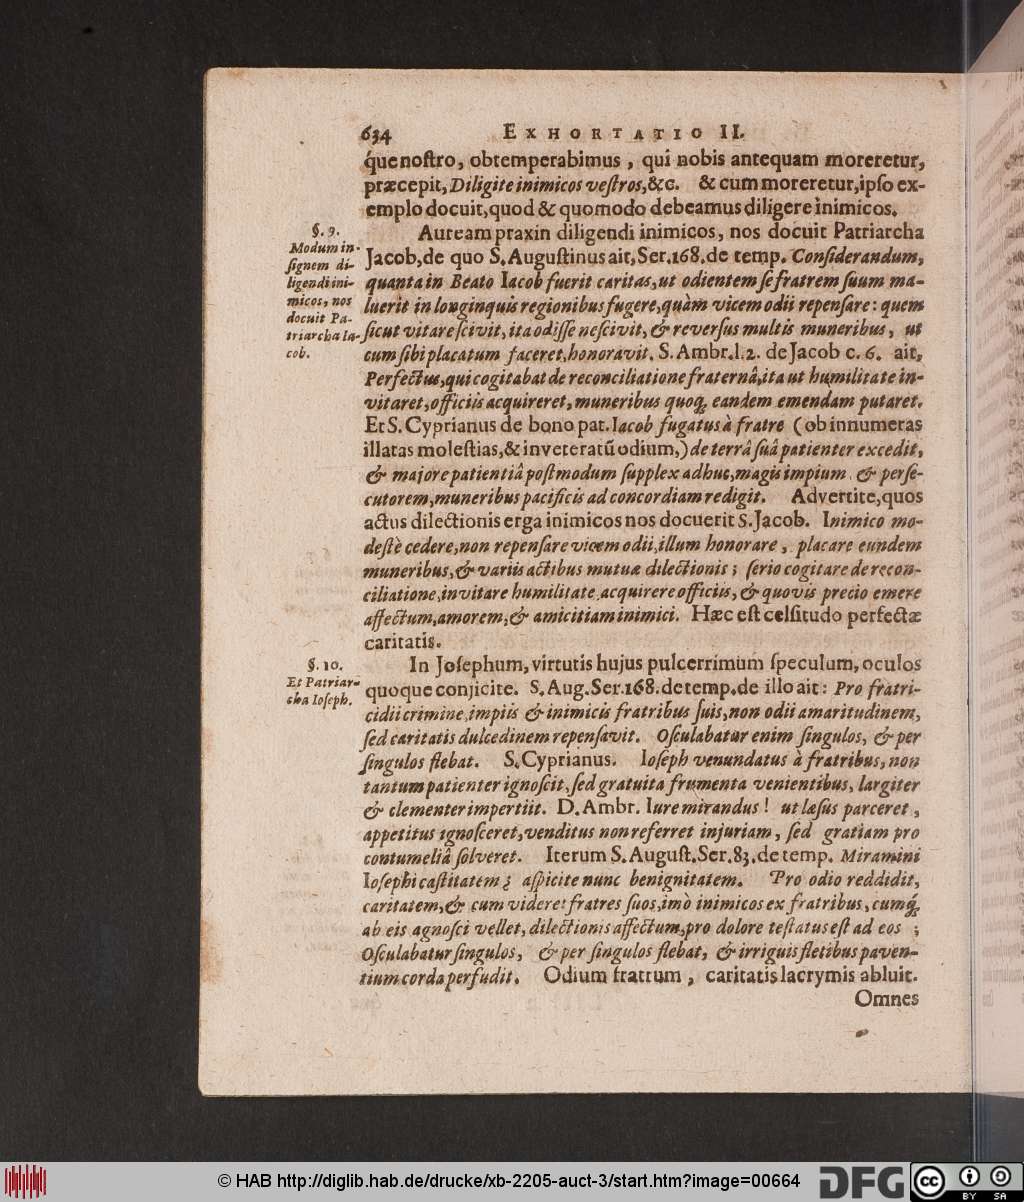 634 EXHORTATIO II.
q́ue noſtro, obtemperabimus, qui nobis antequam moreretur,
præcepit, Diligite inimicos veſtros, &c. & cum moreretur, ipſo ex-
emplo docuit, quod & quomodo debeamus diligere inimicos.
§. 9.
Modum in-
ſignem di-
ligendi ini-
micos, nos
docuit Pa-
triarcha Ia-
cob.
Auream praxin diligendi inimicos, nos docuit Patriarcha
Jacob, de quo S. Auguſtinus ait, Ser. 168. de temp. Conſiderandum,
quanta in Beato Iacob fuerit caritas, ut odientem ſe fratrem ſuum ma-
luerit in longinquis regionibus fugere, quàm vicem odii repenſare: quem
ſicut vitare ſcivit, ita odiſſe neſcivit, & reverſus multis muneribus, ut
cum ſibi placatum faceret, honoravit. S. Ambr. l. 2. de Jacob c. 6. ait,
Perfectus, qui cogitabat de reconciliatione fraternâ, ita ut humilitate in-
vitaret, officiis acquireret, muneribus quoq́; eandem emendam putaret.
Et S. Cyprianus de bono pat. Iacob fugatus à fratre (ob innumeras
illatas moleſtias, & inveteratũ odium,) de terrâ ſuâ patienter excedit,
& majore patientiâ poſtmodum ſupplex adhuc, magis impium & perſe-
cutorem, muneribus pacificis ad concordiam redigit. Advertite, quos
actus dilectionis erga inimicos nos docuerit S. Jacob. Inimico mo-
deſtè cedere, non repenſare vicem odii, illum honorare, placare eundem
muneribus, & variis actibus mutuæ dilectionis; ſerio cogitare de recon-
ciliatione, invitare humilitate, acquirere officiis, & quovis precio emere
affectum, amorem, & amicitiam inimici. Hæc eſt celſitudo perfectæ
caritatis.
§. 10.
Et Patriar-
cha Ioſeph.
In Joſephum, virtutis hujus pulcerrimum ſpeculum, oculos
quoque conjicite. S. Aug. Ser. 168. de temp. de illo ait: Pro fratri-
cidii crimine, impiis & inimicis fratribus ſuis, non odii amaritudinem,
ſed caritatis dulcedinem repenſavit. Oſculabatur enim ſingulos, & per
ſingulos flebat. S. Cyprianus. Ioſeph venundatus à fratribus, non
tantum patienter ignoſcit, ſed gratuita frumenta venientibus, largiter
& clementer impertiit. D. Ambr. Iure mirandus! ut læſus parceret,
appetitus ignoſceret, venditus non referret injuriam, ſed gratiam pro
contumeliâ ſolveret. Iterum S. Auguſt. Ser. 83. de temp. Miramini
Ioſephi caſtitatem; aſpicite nunc benignitatem. Pro odio reddidit,
caritatem, & cum videret fratres ſuos, imò inimicos ex fratribus, cumq́;
ab eis agnoſci vellet, dilectionis affectum, pro dolore teſtatus eſt ad eos;
Oſculabatur ſingulos, & per ſingulos flebat, & irriguis fletibus paven-
tium corda perfudit. Odium fratrum, caritatis lacrymis abluit.
Omnes
© HAB http://diglib.hab.de/drucke/xb-2205-auct-3/start.htm?image=00664
DFG
cc BY SA